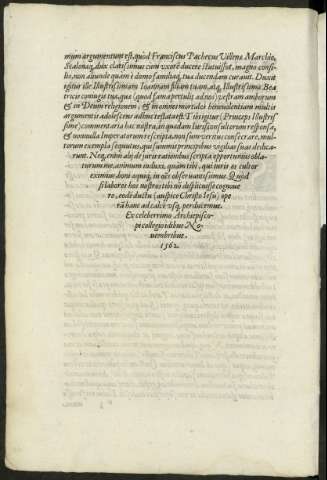 mum argumentum est, quod Franciscus Pachecus Villena Marchio,
Scalonaq́; dux clarissimus cùm vxorẽ ducere statuisset, magno consi-
lio, non aliunde quàm è domo familiaq́; tua ducendam curauit. Duxit
igitur ille Illustrissimam Ioannam filiam tuam, atq́; Illustrissimæ Bea-
tricis coniugis tuæ, quæ (quod fama pertulit ad nos) vestram amborum
& in Deum religionem, & in omnes mortales beneuolentiam multis
argumentis adolescens adhuc testata est. Tu igitur (Princeps Illustris
sime) commentaria hæc nostra, in quædam Iurisconsultorum responsa,
& nonnulla Imperatorum rescripta, non inuitus suscipe,
multorum exempla sequutus, qui summis principibus vigilias suas dedica-
runt. Neq́; enim alij de iure ratiombus scripta opportuniùs obla-
turum me, animum induxi, quàm tibi, qui iuris es cultor
eximius domi aquæ, in oẽs obseruantissimus. Quòd
si labores hos nostros tibi nõ despectuisse cognoue
ro, eodẽ ductu (auspice Christo Iesu) ope
rã hanc ad calcẽ vsq́; perducemus.
Ex celeberrimo Archiepisco-
pi collegio idibus No-
uembribus.
1562.